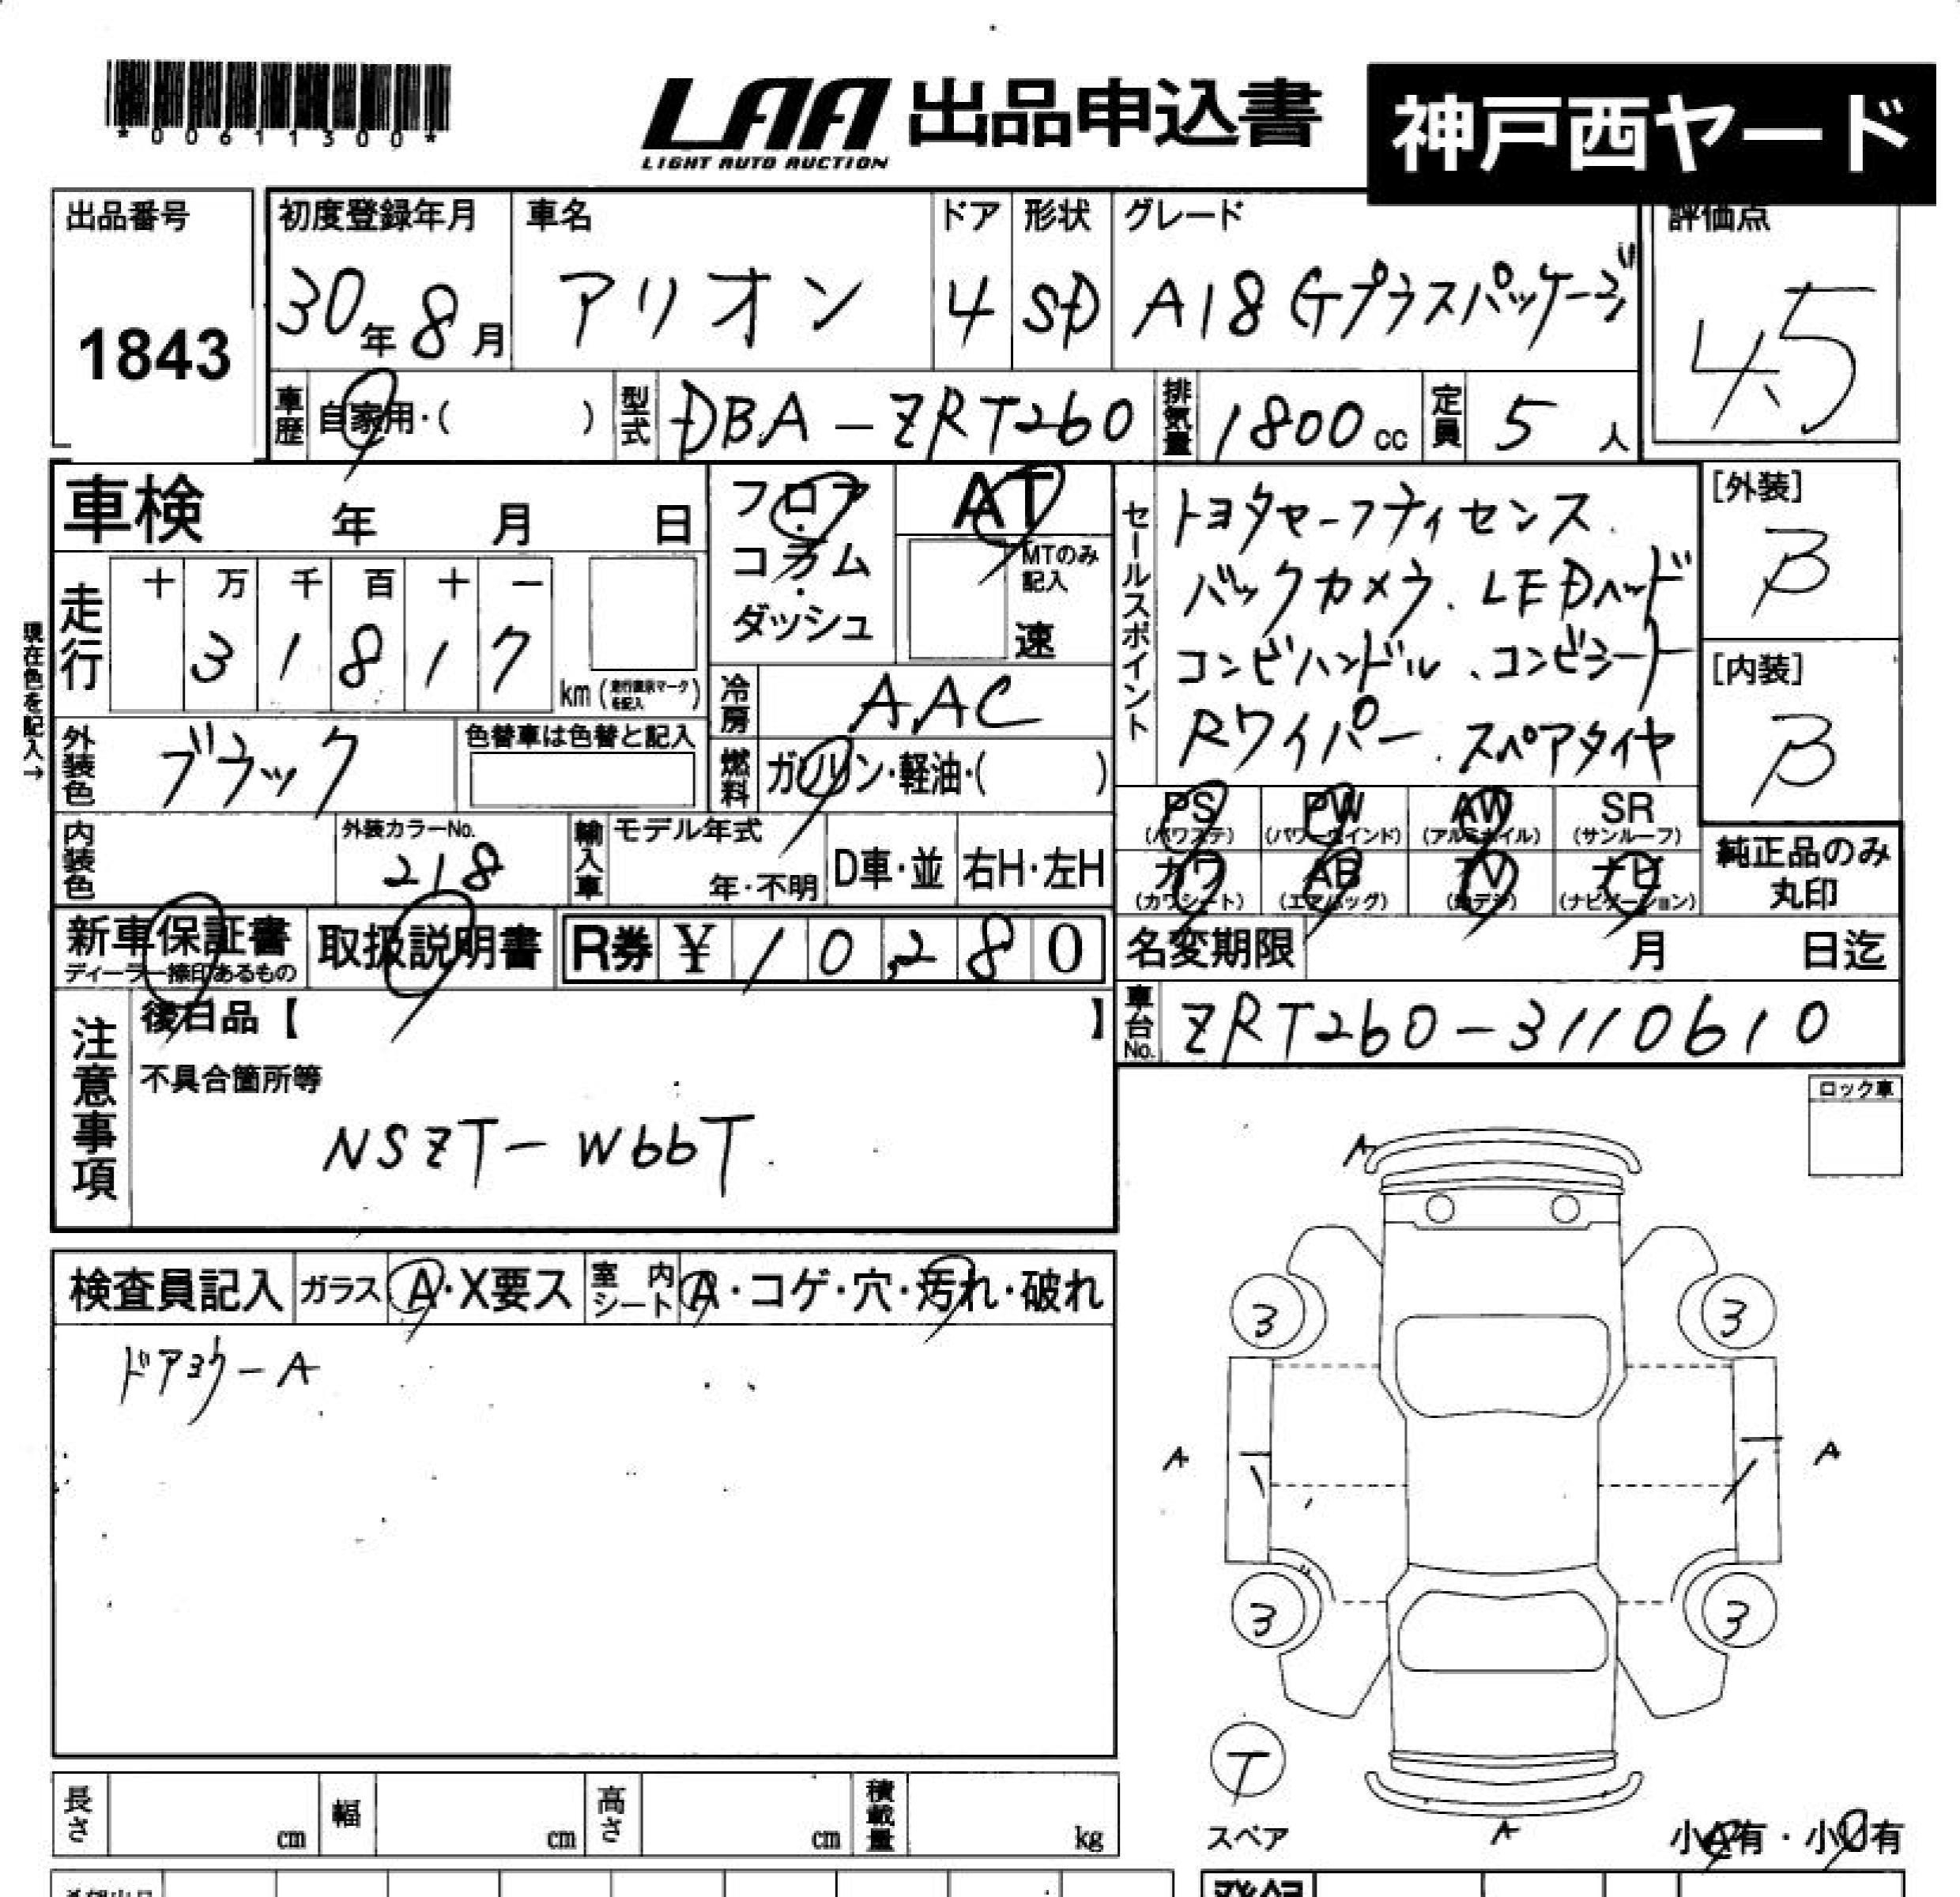 *00611300*
LAA 出品申込書 神戸西ヤード
LIGHT AUTO AUCTION
出品番号 1843
初度登録年月 30年8月
車名 アリオン
ドア 4
形状 SD
グレード A18 Gプラスパッケージ
評価点 4.5
車歴 自家用・( )
型式 DBA-ZRT260
排気量 1800cc
定員 5人
車検 年 月 日
フロア・コラム・ダッシュ
AT
MTのみ記入
速
セールスポイント
トヨタセーフティセンス.
バックカメラ、LEDヘッド
コンビハンドル、コンビシート
Rワイパー、スペアタイヤ
[外装] B
[内装] B
現在色を記入→
走行 十 万 千 百 十 一
3 1 8 1 7
km (走行表示マークを記入)
冷房 AAC
外装色 ブラック
色替車は色替と記入
燃料 ガソリン・軽油・( )
PS (パワステ)
PW (パワーウインド)
AW (アルミホイル)
SR (サンルーフ)
カワ (カワシート)
AB (エアバッグ)
TV
ナビ (ナビゲーション)
純正品のみ丸印
内装色
外装カラーNo. 218
輸入車 モデル年式 年・不明
D車・並
右H・左H
新車保証書
ディーラー捺印あるもの
取扱説明書
R券 ¥ 10,280
名変期限 月 日迄
注意事項
後日品【 】
車台No. ZRT260-3110610
不具合箇所等
NSZT-W66T
ロック車
検査員記入
ガラス A・X要ス
室内シート A・コゲ・穴・汚れ・破れ
ドアミラーA
A
3 3
A A
3 3
T
スペア
A
小A有・小U有
長さ cm
幅 cm
高さ cm
積載量 kg